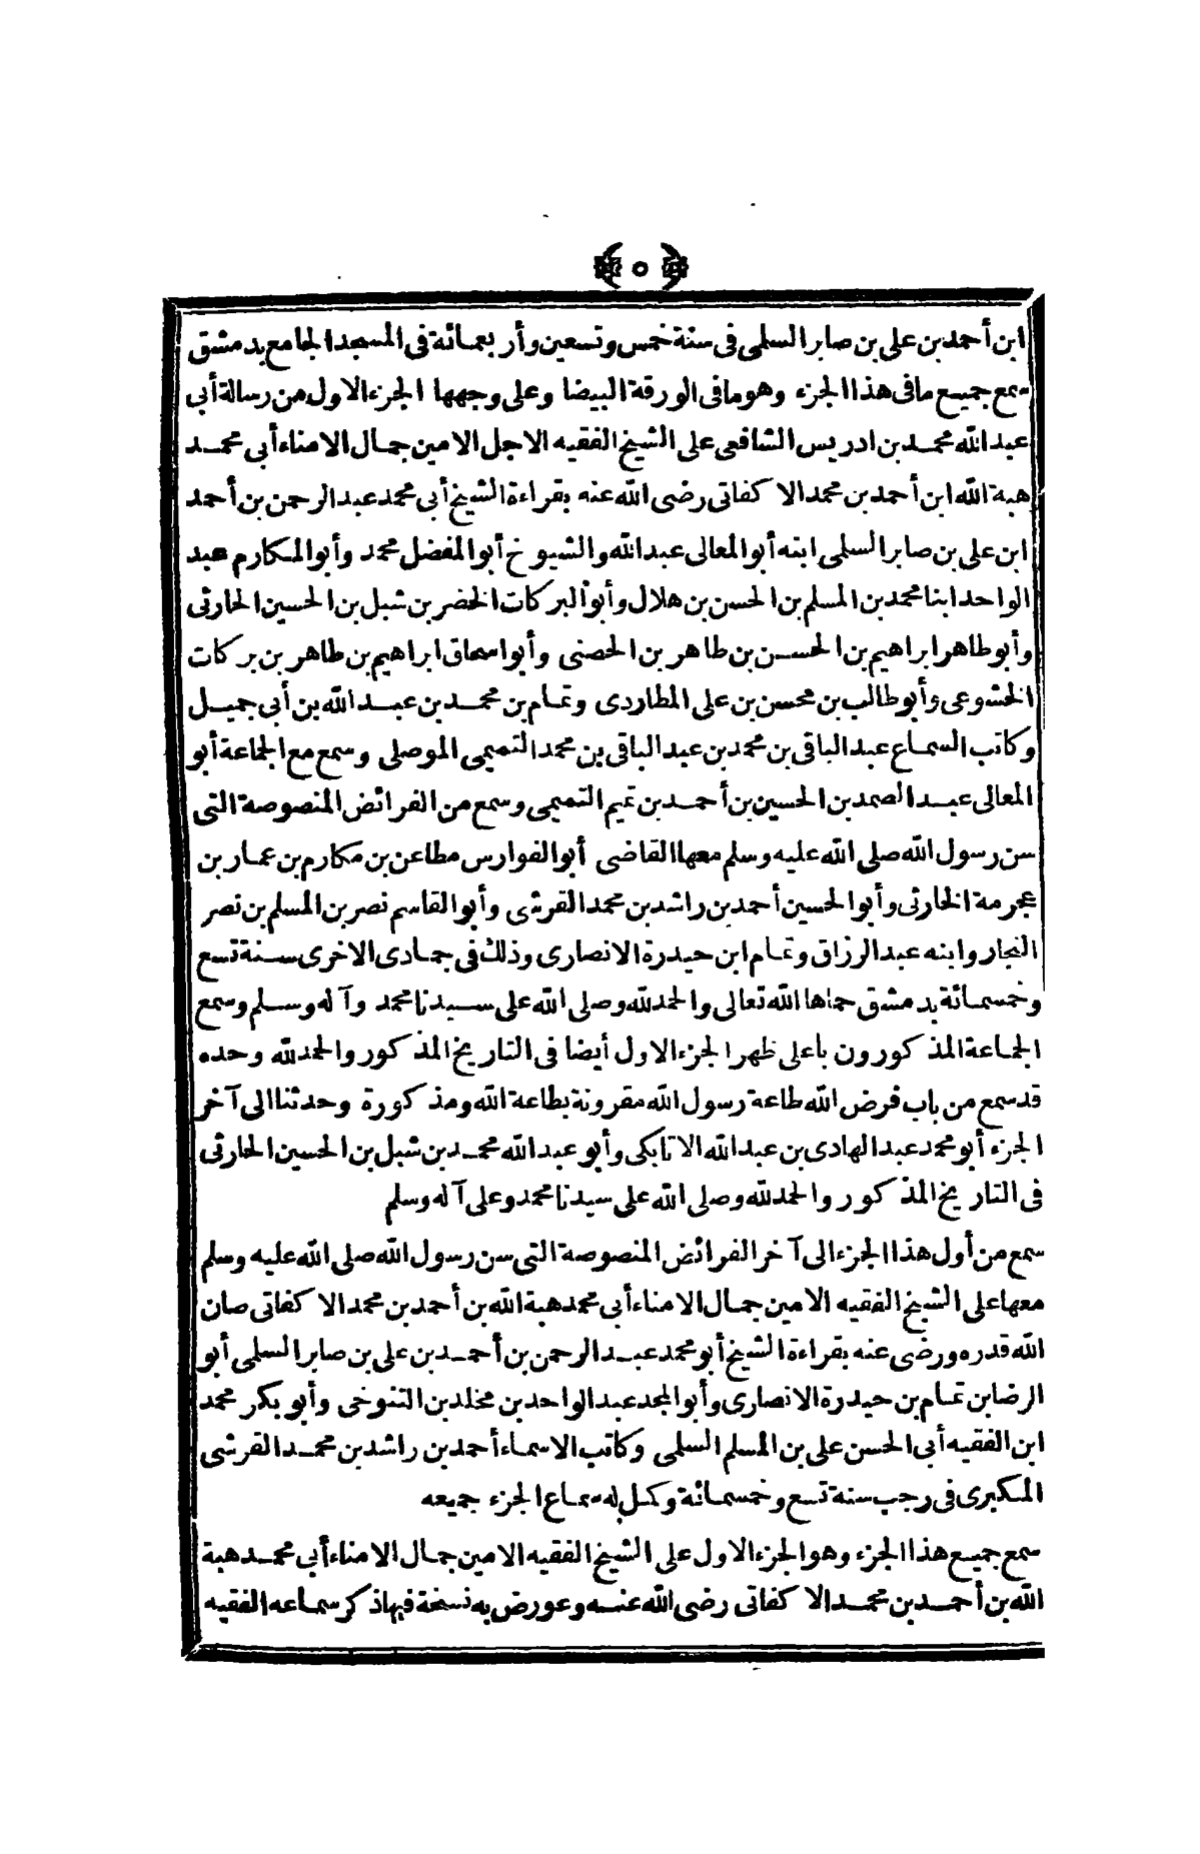 (٥)
ابن أحمد بن على بن صابر السلمى فى سنة خمس وتسعين وأربعمائة فى المسجد الجامع بدمشق
سمع جميع مافى هذا الجزء وهو مافى الورقة البيضا وعلى وجهها الجزء الاول من رسالة أبى
عبد الله محمد بن ادريس الشافعى على الشيخ الفقيه الاجل الامين جمال الامناء أبى محمد
هبة الله ابن أحمد بن محمد الاكفانى رضى الله عنه بقراءة الشيخ أبى محمد عبد الرحمن بن أحمد
ابن على بن صابر السلمى ابنه أبو المعالى عبد الله والشيوخ أبو المفضل محمد وأبو المكارم عبد
الواحد ابنا محمد بن المسلم بن الحسن بن هلال وأبو البركات الخضر بن شبل بن الحسين الحارثى
وأبو طاهر ابراهيم بن الحسن بن طاهر بن الحصنى وأبو اسحاق ابراهيم بن طاهر بن بركات
الخشوعى وأبو طالب بن محسن بن على المطاردى وتمام بن محمد بن عبد الله بن أبى جميل
وكاتب السماع عبد الباقى بن محمد بن عبد الباقى بن محمد التميمى الموصلى وسمع مع الجماعة أبو
المعالى عبد الصمد بن الحسين بن أحمد بن تميم التميمى وسمع من الفرائض المنصوصة التى
سن رسول الله صلى الله عليه وسلم معها القاضى أبو الفوارس مطاعن بن مكارم بن عمار بن
عجرمة الحارثى وأبو الحسين أحمد بن راشد بن محمد القرشى وأبو القاسم نصر بن المسلم بن نصر
النجار وابنه عبد الرزاق وتمام ابن حيدرة الانصارى وذلك فى جمادى الاخرى سنة تسع
وخمسمائة بدمشق حماها الله تعالى والحمد لله وصلى الله على سيدنا محمد وآله وسلم وسمع
الجماعة المذكورون بأعلى ظهر الجزء الاول أيضا فى التاريخ المذكور والحمد لله وحده
قد سمع من باب فرض الله طاعة رسول الله مقرونة بطاعة الله ومذكورة وحدثنا الى آخر
الجزء أبو محمد عبد الهادى بن عبد الله الاتابكى وأبو عبد الله محمد بن شبل بن الحسين الحارثى
فى التاريخ المذكور والحمد لله وصلى الله على سيدنا محمد وعلى آله وسلم
سمع من أول هذا الجزء الى آخر الفرائض المنصوصة التى سن رسول الله صلى الله عليه وسلم
معها على الشيخ الفقيه الامين جمال الامناء أبى محمد هبة الله بن أحمد بن محمد الاكفانى صان
الله قدره ورضى عنه بقراءة الشيخ أبو محمد عبد الرحمن بن أحمد بن على بن صابر السلمى أبو
الرضا بن تمام بن حيدرة الانصارى وأبو المجد عبد الواحد بن مخلد بن التنوخى وأبو بكر محمد
ابن الفقيه أبى الحسن على بن المسلم السلمى وكاتب الاسماء أحمد بن راشد بن محمد القرشى
المكبرى فى رجب سنة تسع وخمسمائة وكمل له سماع الجزء جميعه
سمع جميع هذا الجزء وهو الجزء الاول على الشيخ الفقيه الامين جمال الامناء أبى محمد هبة
الله بن أحمد بن محمد الاكفانى رضى الله عنه وعورض به نسخة فيها ذكر سماعه الفقيه